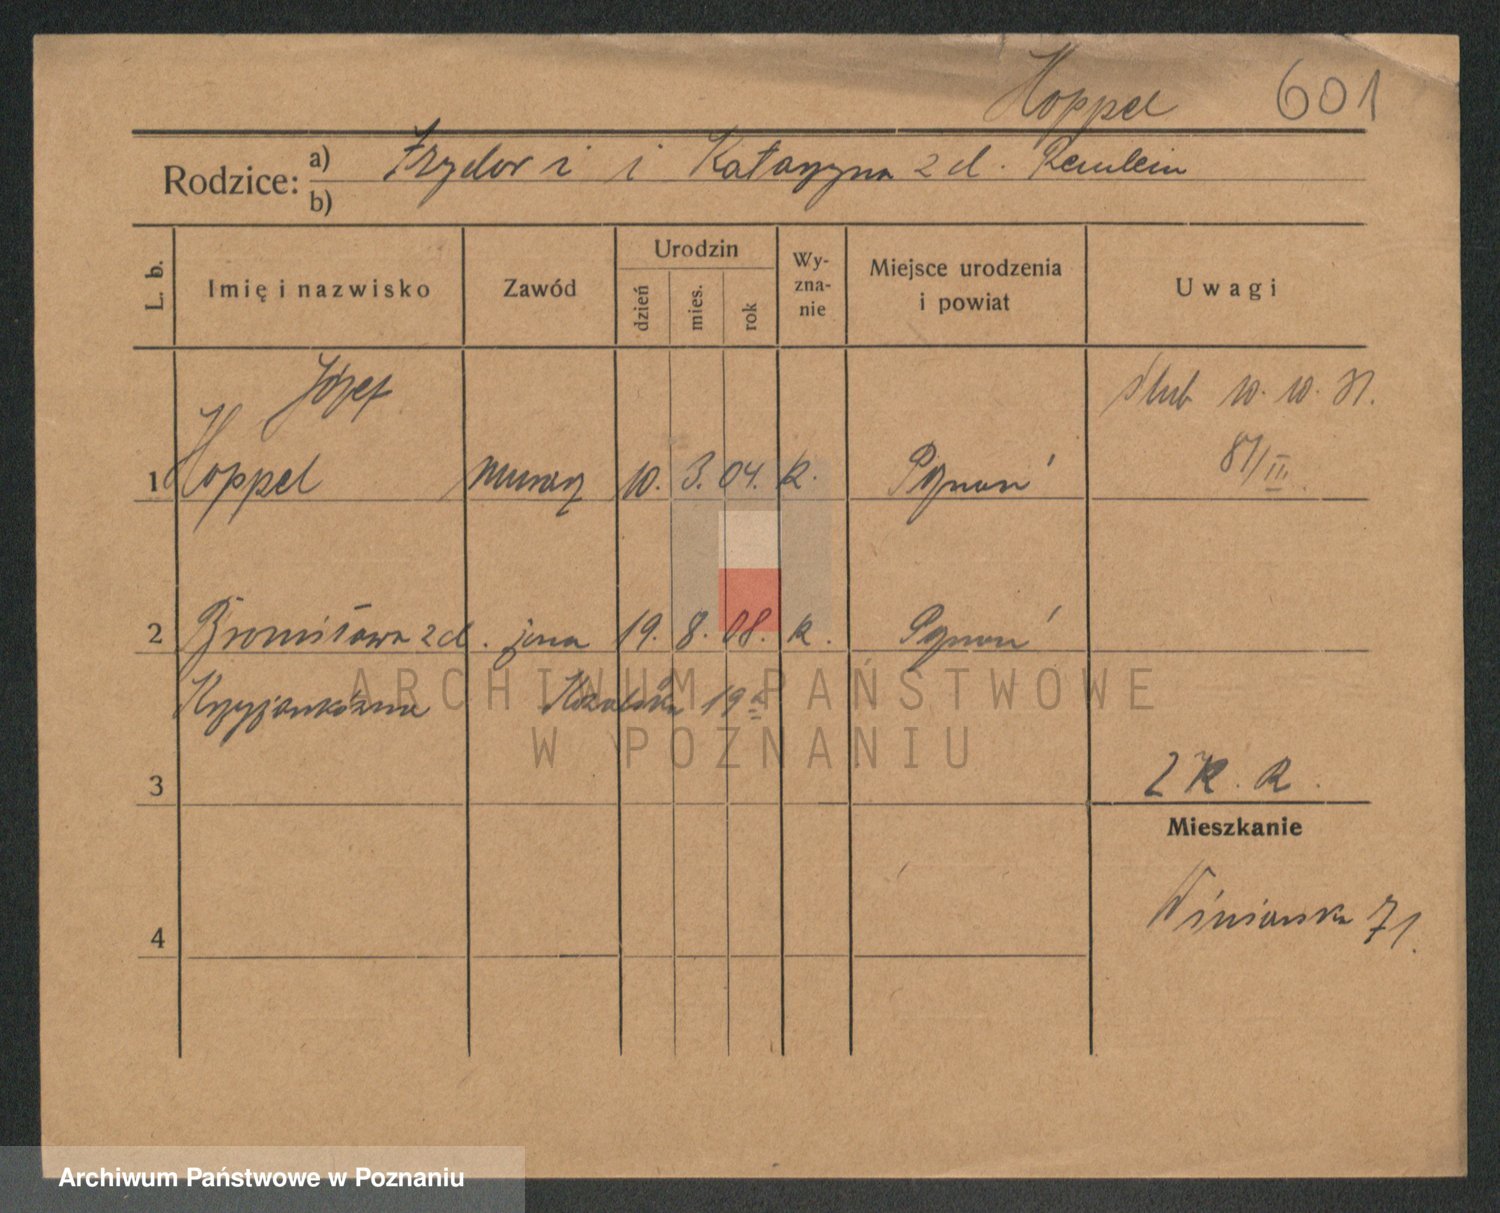 Hoppel 601
Rodzice: a) Izydor i Katarzyna z d. Remlein
b)
L. b. Imię i nazwisko Zawód Urodzin Wyznanie Miejsce urodzenia i powiat Uwagi
dzień mies. rok
Józef ślub 10. 10. 31.
1 Hoppel murarz 10. 3. 04. k. Poznań 81/III.
2 Bronisława z d. żona 19. 8. 08. k. Poznań
Krzyżankówna 19
3 2 K. R.
Mieszkanie
4 Winiarska 71.
ARCHIWUM PAŃSTWOWE
W POZNANIU
Archiwum Państwowe w Poznaniu